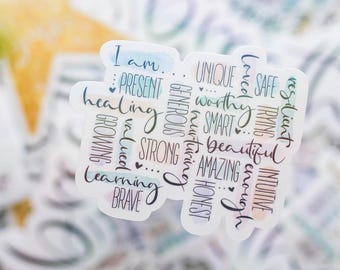 I am....
PRESENT
healing
GROWING
valued
STRONG
learning
BRAVE
GENEROUS
nurturing
UNIQUE
worthy
SMART
beautiful
AMAZING
HONEST
loved
SAFE
TRYING
resilient
enough
INTUITIVE